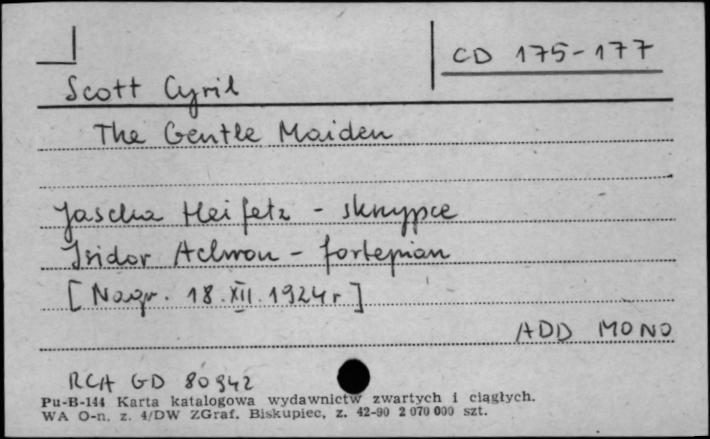 CD 175-177
Scott Cyril
The Gentle Maiden
Jascha Heifetz - skrzypce
Isidor Achron - fortepian
[Nagr. 18.XII.1924r]
ADD MONO
RCA GD 80942
Pu-B-144 Karta katalogowa wydawnictw zwartych i ciągłych.
WA O-n. z. 4/DW ZGraf. Biskupiec, z. 42-90 2 070 000 szt.